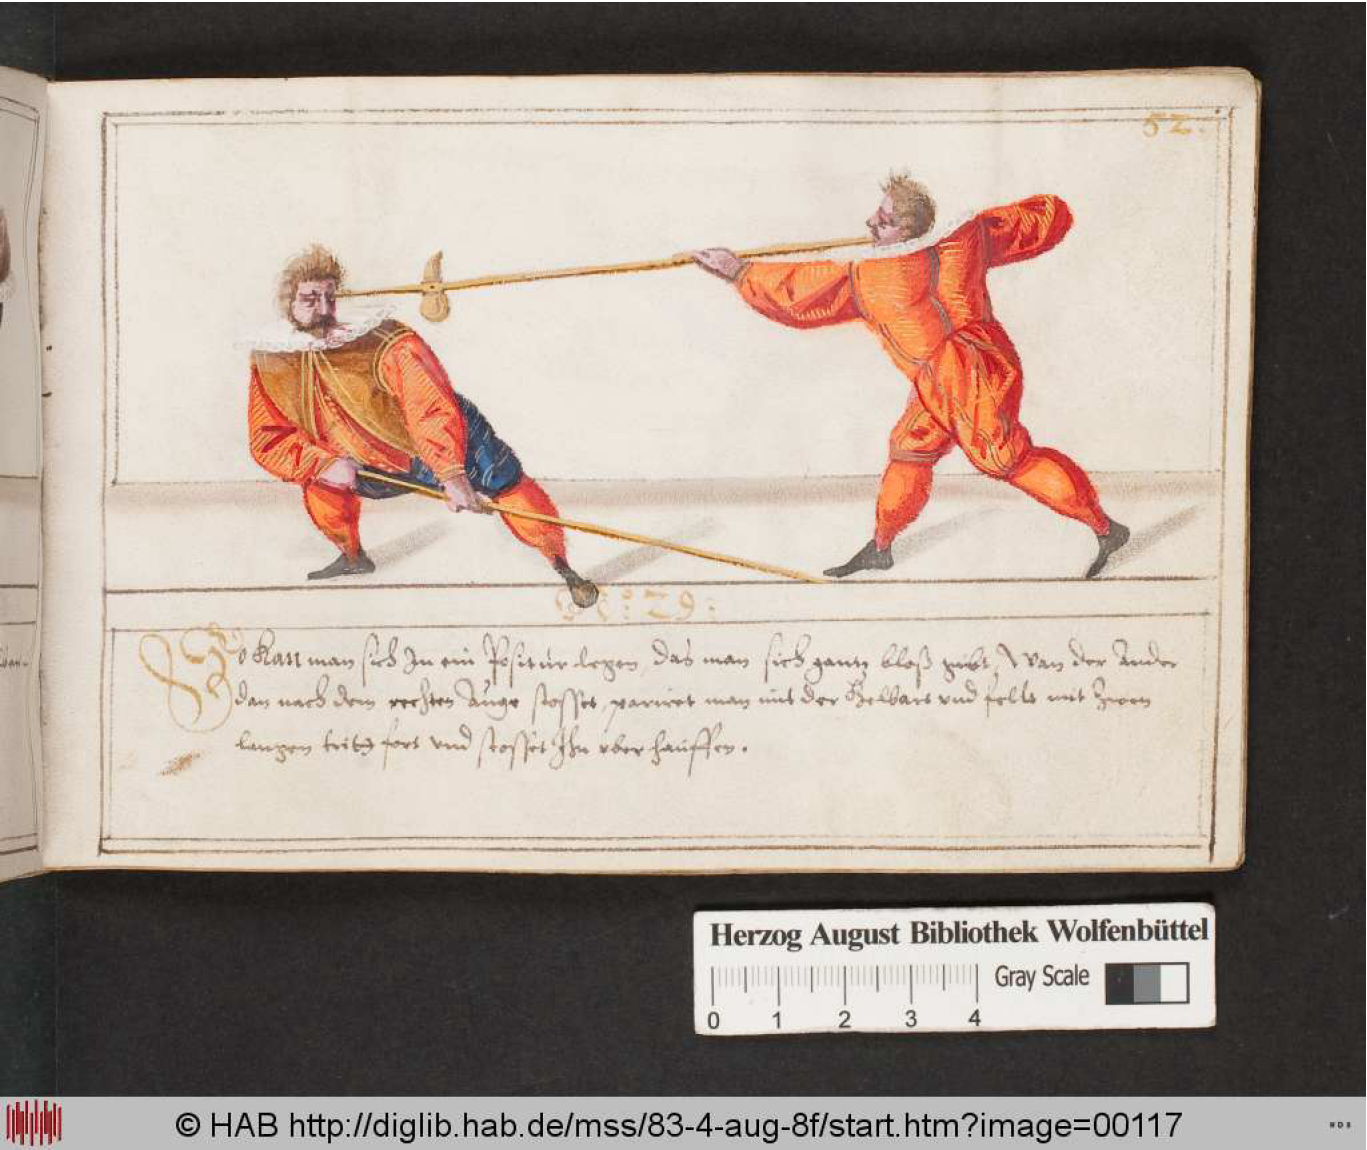 52.
N: 29:
So Kan man sich In ein Positur legen, das man sich gantz bloß gibt, Wan der Ander
dan nach dem rechten Auge stosset, pariret man mit der Helbart vnd felt mit Zwen
langen tritt fort vnd stosset Ihn vber hauffen.
Herzog August Bibliothek Wolfenbüttel
Gray Scale
0 1 2 3 4
© HAB http://diglib.hab.de/mss/83-4-aug-8f/start.htm?image=00117